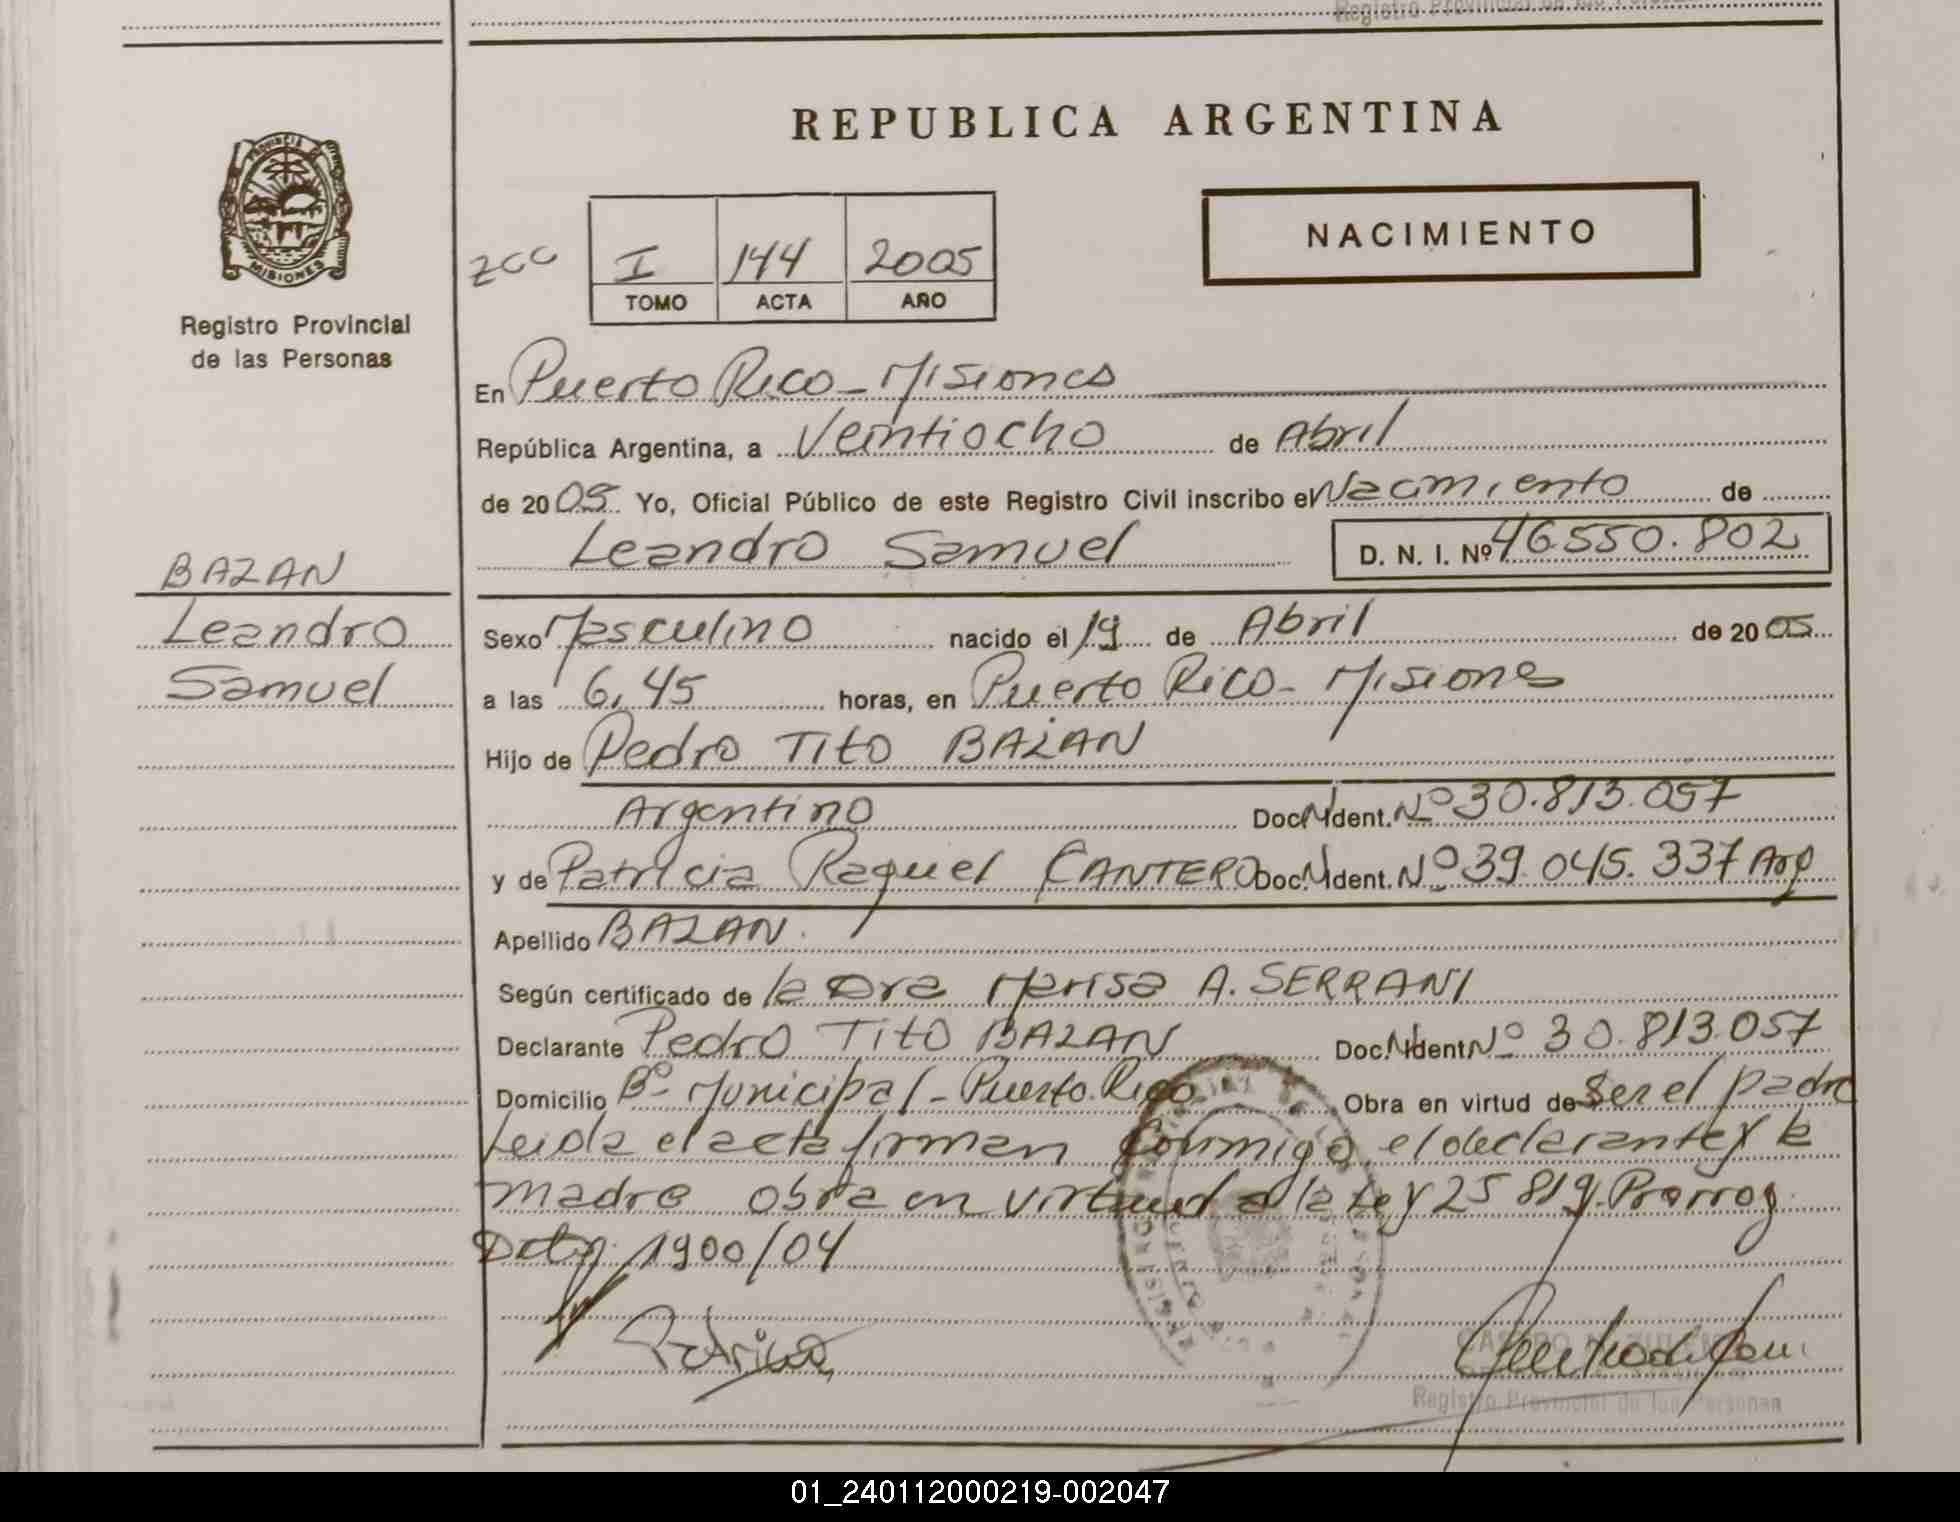 Registro Provincial de las Personas
REPUBLICA ARGENTINA
PROVINCIA
MISIONES
Registro Provincial
de las Personas
NACIMIENTO
I 144 2005
TOMO ACTA AÑO
En Puerto Rico - Misiones
República Argentina, a Veintiocho de Abril
de 2005. Yo, Oficial Público de este Registro Civil inscribo el Nacimiento de
Leandro Samuel D. N. I. Nº 46550.802
BAZAN
Leandro
Samuel
Sexo Masculino nacido el 19 de Abril de 2005
a las 6,45 horas, en Puerto Rico - Misiones
Hijo de Pedro Tito BAZAN
Argentino Doc. Ident. Nº 30.813.057
y de Patricia Raquel CANTERO Doc. Ident. Nº 39.045.337 Arg
Apellido BAZAN.
Según certificado de la Dra Marisa A. SERRANI
Declarante Pedro Tito BAZAN Doc. Ident Nº 30.813.057
Domicilio Bº Municipal - Puerto Rico. Obra en virtud de Ser el padre
Leida el acta firman Conmigo el declarante y la
madre obra en virtud a la Ley 25819. Prorrog
1900/04
Patricia
Registro Provincial de las Personas
01_240112000219-002047